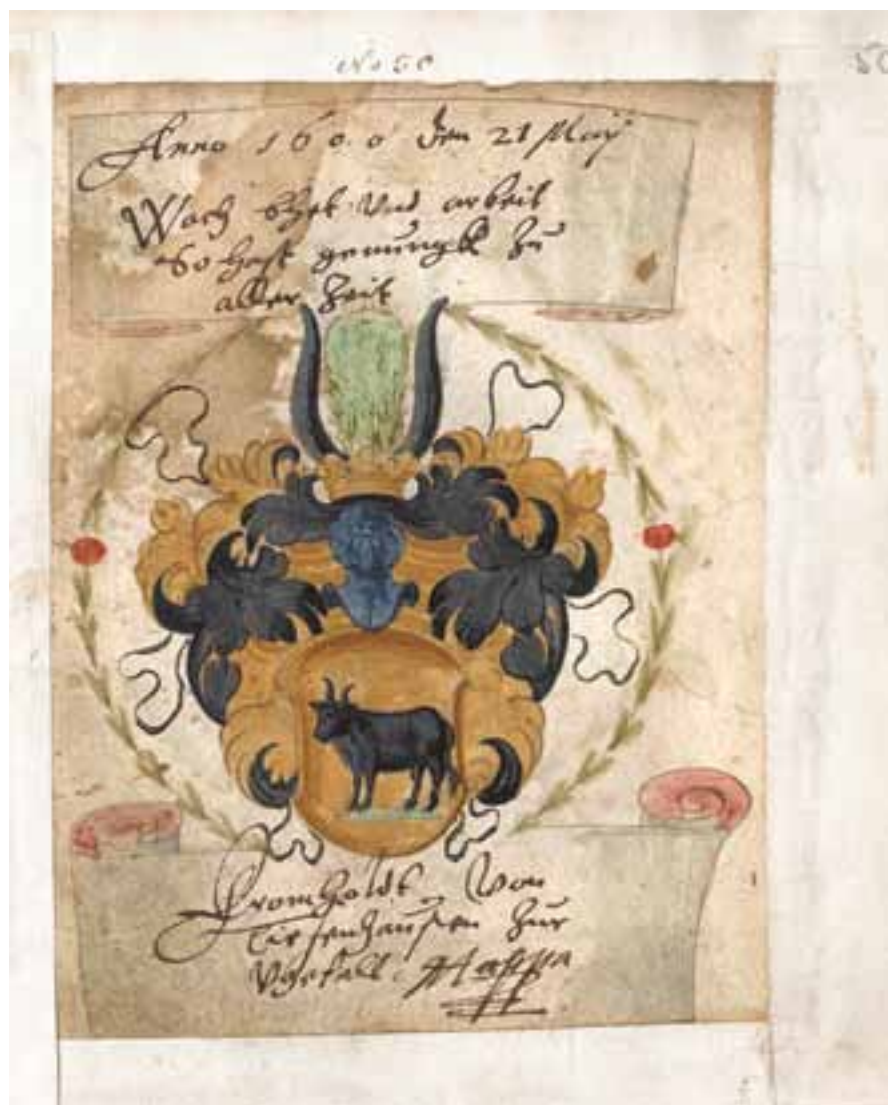 No 50
50
Anno 1600 den 21 Maÿ
Wach Bhet Vnd arbeit
So hast genungk zu
aller Zeit
Fromholdt Von
Tiesenhausen Zur